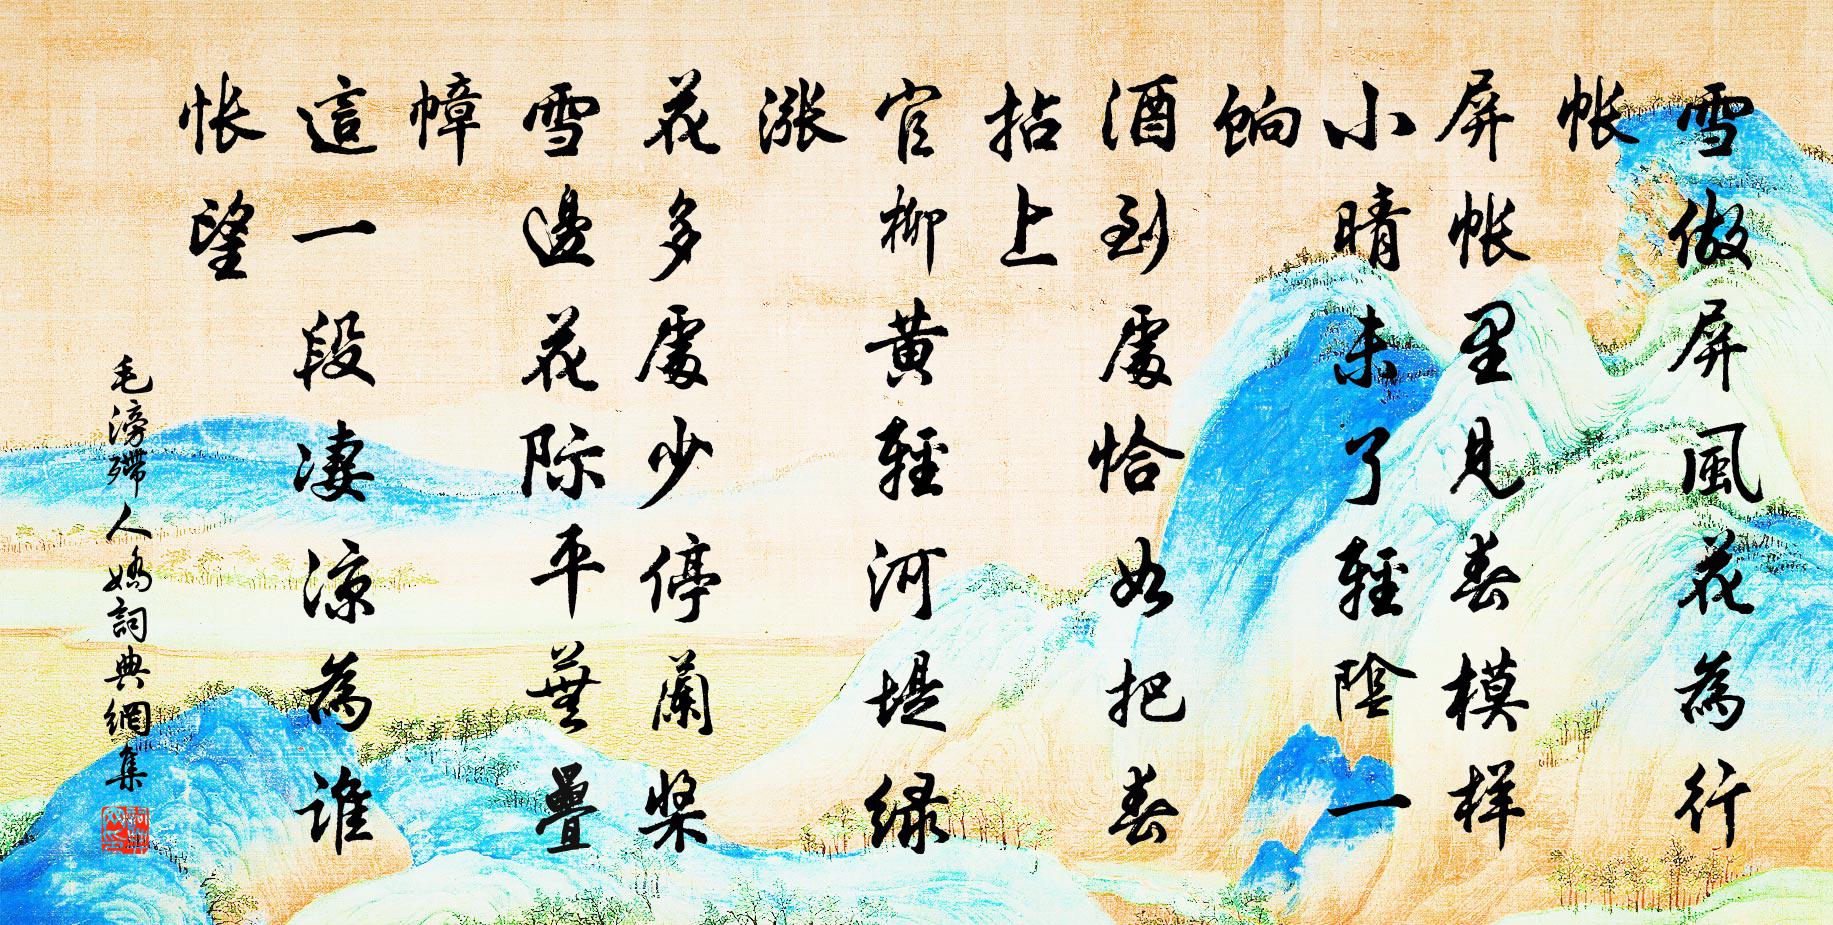 雪做屏風花為行
帐
屏帐里見春模样
小晴未了輕陰一
餉
酒到處恰如把春
拈上
官柳黄輕河堤绿
涨
花多處少停蘭桨
雪邊花际平蕪疊
幛
這一段凄涼為谁
怅望
毛滂殢人嬌詞典網集